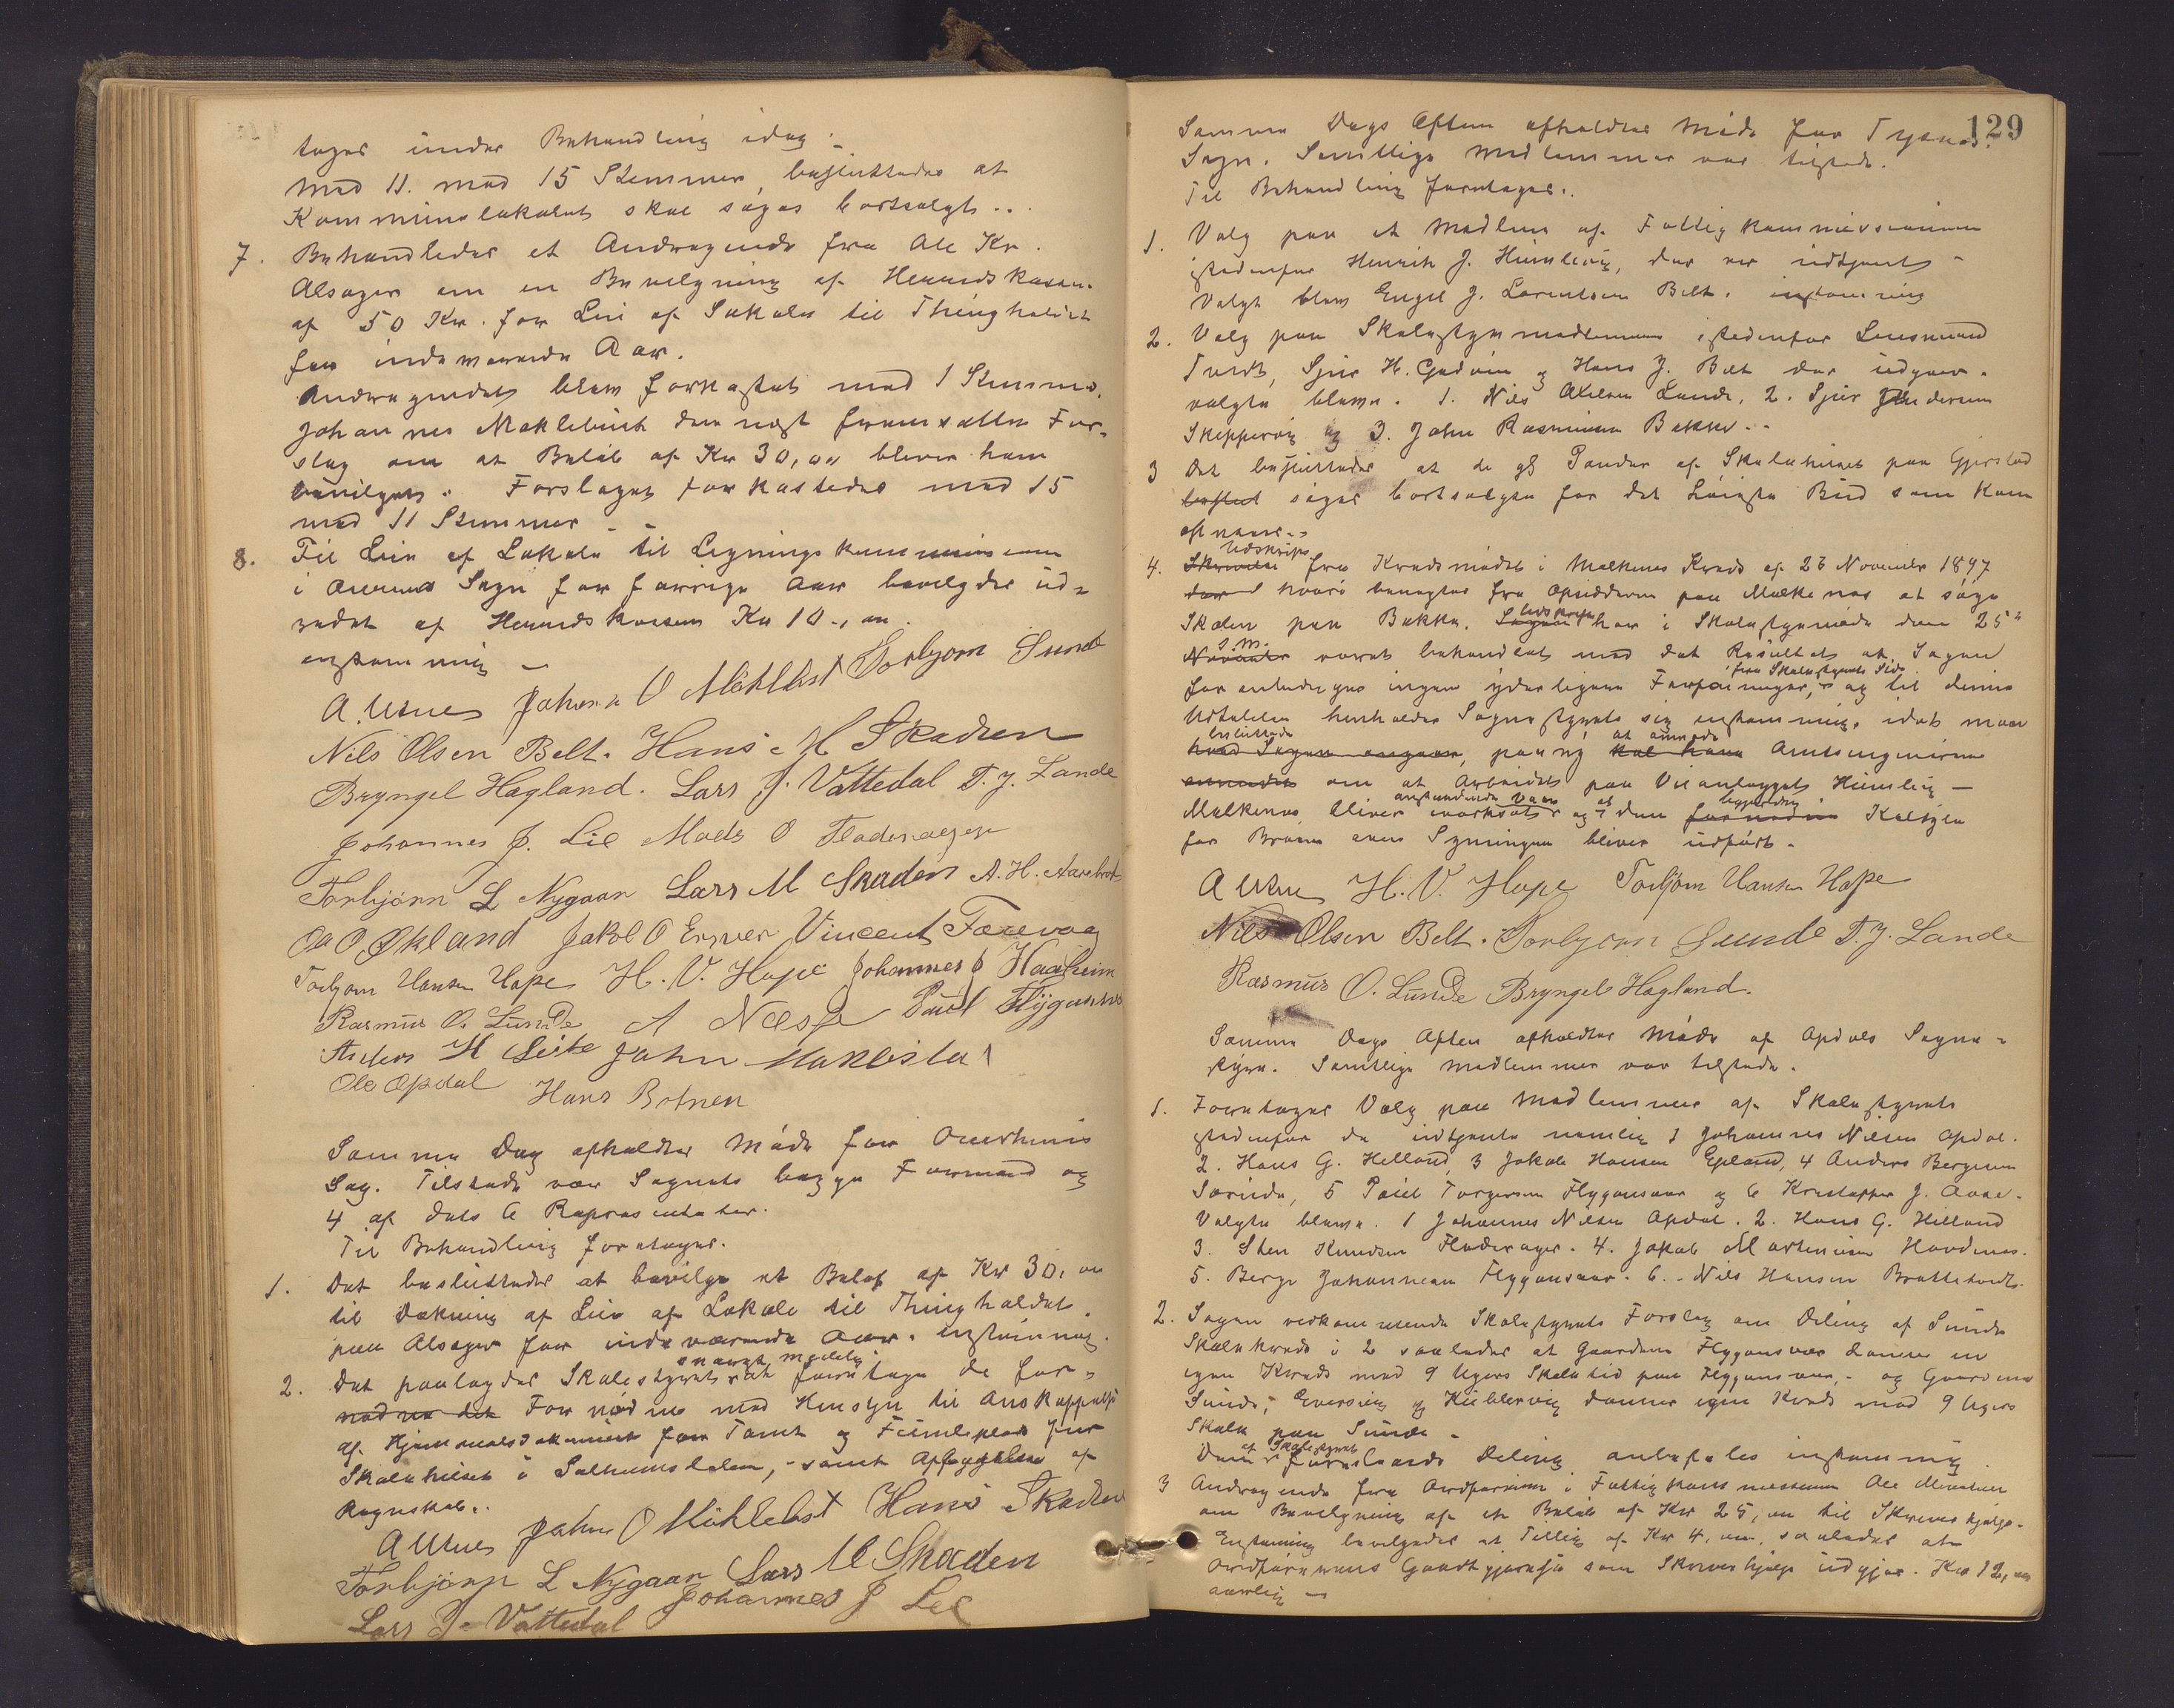 tages under Behandling idag.
Med 11. mod 15 Stemmer, besluttedes at
Kommunelokalet skal søges bortsolgt..
7. Behandledes et Andragende fra Ole Kr.
Alsager om en Bevilgning af Herredskassen
af 50 Kr. for Leie af Lokaler til Thingholdet
for indeværende Aar.
Andragendet blev forkastet med 1 Stemme.
Johannes Møklebust dernæst fremsatte For-
slag om at Beløb af Kr 30,00 bliver ham
bevilget. Forslaget forkastedes med 15
mod 11 Stemmer
8. Til Leie af Lokale til Ligningskommissionen
i Onarems Sogn for forrige Aar bevilgdes ud-
redet af Herredskassen Kr 10.,00.
enstemmig –
A Utne Johan O Möklebst Torbjorn Sunde
Nils Olsen Belt. Hans M Skaden
Bryngel Hagland. Lars J. Vattedal T. J. Lande
Johannes J. Lie Mads O Fladerager
Torbjörn L Nygaar Lars M Skaden A. H. Aarebrot
Ola O. Økland Jakob O Ersver Vincent Færevaag
Torbjorn Hansen Hope H. V. Hope Johannes J Haaheim
Rasmus O. Lunde A Næss Paul Flygansvær
Anders H Leite John Maklestad
Ole Opdal Hans Botnen
Samme Dag afholdtes Møde for Onarheims
Sog. Tilstede var Sognets begge Formænd og
4 af dets 6 Repræsentanter.
Til Behandling foretages.
1. Det besluttedes at bevilge et Beløb af Kr 30,00
til Dækning af Leie af Lokale til Thingholdet
paa Alsager for indeværende Aar. enstemmig.
2. Det paalagdes Skolestyret snarest muligt at foretage de for-
nødne det Fornødne med Hensyn til Anskaffelse
af Hjemmelsdokument for Tomt og Fiimleplads for
Skolehuset i Sælheimsdalen, samt Opbyggelse af
Regnskab..
A Utne Johan O Möklebst Hans Skaden
Torbjörn L Nygaar Lars M Skaden
Lars J. Vattedal Johannes J Lie
129
Samme Dags Aften afholdtes Møde for Tysnes
Sogn. Samtlige Medlemmer var tilstede.
Til Behandling foretages..
1. Valg paa et Medlem af Fattigkommissionen
istedenfor Henrik J. Heimlevig, der er udtjent –
Valgt blev Engel J. Lorentsen Belt. enstemmig
2. Valg paa Skolestyremedlemmer istedenfor Lensmand
Tvedt, Sjur H. Godøen og Hans J. Belt der udgaar.
valgte bleve. 1. Nils Akselsen Lande. 2. Sjur Andersen
Skeppevig og 3. John Rasmussen Bakke..
3 Det besluttedes at de gl Tomter af Skolehuset paa Gjerstad
besluttet søges bortsolgte for det høieste Bud som kan
opnaaes..
4. Skrivelse Udskrift fra Kredsmødet i Malkenes Kreds af 23 November 1897
der I hvori beregtes fra Opsidderne paa Malkenes at søge
Skolen paa Bakke. Sagen Udskriften har i Skolestyremøde den 25"
November s.m. været behandlet med det Resultat at Sagen
foranlediger ingen yderligere Forføininger, fra Skolestyrets Side og til denne
Udtalelse henholder Sognestyret sig enstemmig, idet man
hvad Sagen angaar, besluttede paany skal have at anmode Amtsingeniøren
anmodet om at Arbeidet paa Veianlægget Heimleig –
Malkenes bliver iværksat anstundende Vaar og at den fornødne begjærede Kalkyle
for Broen over Symingen bliver udført.
A Utne H. V. Hope Torbjörn Hansen Hope
Nils Olsen Belt. Torbjorn Sunde T. J. Lande
Rasmus O. Lunde Bryngel Hagland.
Samme Dags Aften afholdtes Møde af Opdals Sogne-
styre. Samtlige Medlemmer var tilstede.
1. Foretages Valg paa Medlemmer af Skolestyret
istedenfor de udtjente nemlig 1 Johannes Nilsen Opdal.
2. Hans G. Helland, 3 Jakob Hansen Epland, 4 Anders Bergesen
Sørinde, 5 Paul Torgersen Flygansvær og 6 Kristoffer J. Aase.
Valgte bleve. 1 Johannes Nilsen Opdal. 2. Hans G. Helland
3. Sten Knudsen Fladerager. 4. Jakob Mortensen Hovdenes.
5. Berge Johannesen Flygansvær. 6. Nils Hansen Brattetveit.
2. Sagen vedkommende Skolestyrets Forslag om Deling af Sunde
Skolekreds i 2 saaledes at Gaarden Flygansvær danner en
egen Kreds med 9 Ugers Skoletid paa Flygansvær, og Gaardene
Sunde, Eversvig og Kieblervig danner egen Kreds med 9 Ugers
Skole paa Sunde.
Den af Skolestyret foreslaaede Deling anbefales enstemmig
3 Andragende fra Ordføreren i Fattigkommissionen Ole
om Bevilgning af et Beløb af Kr 25,00 til Skriverhjælp.
Enstemmig bevilgedes et Tillæg af Kr 4,00, saaledes at
Ordførerens Godtgjørelse som Skriverhjælp udgjør. Kr 12,00
aarlig –